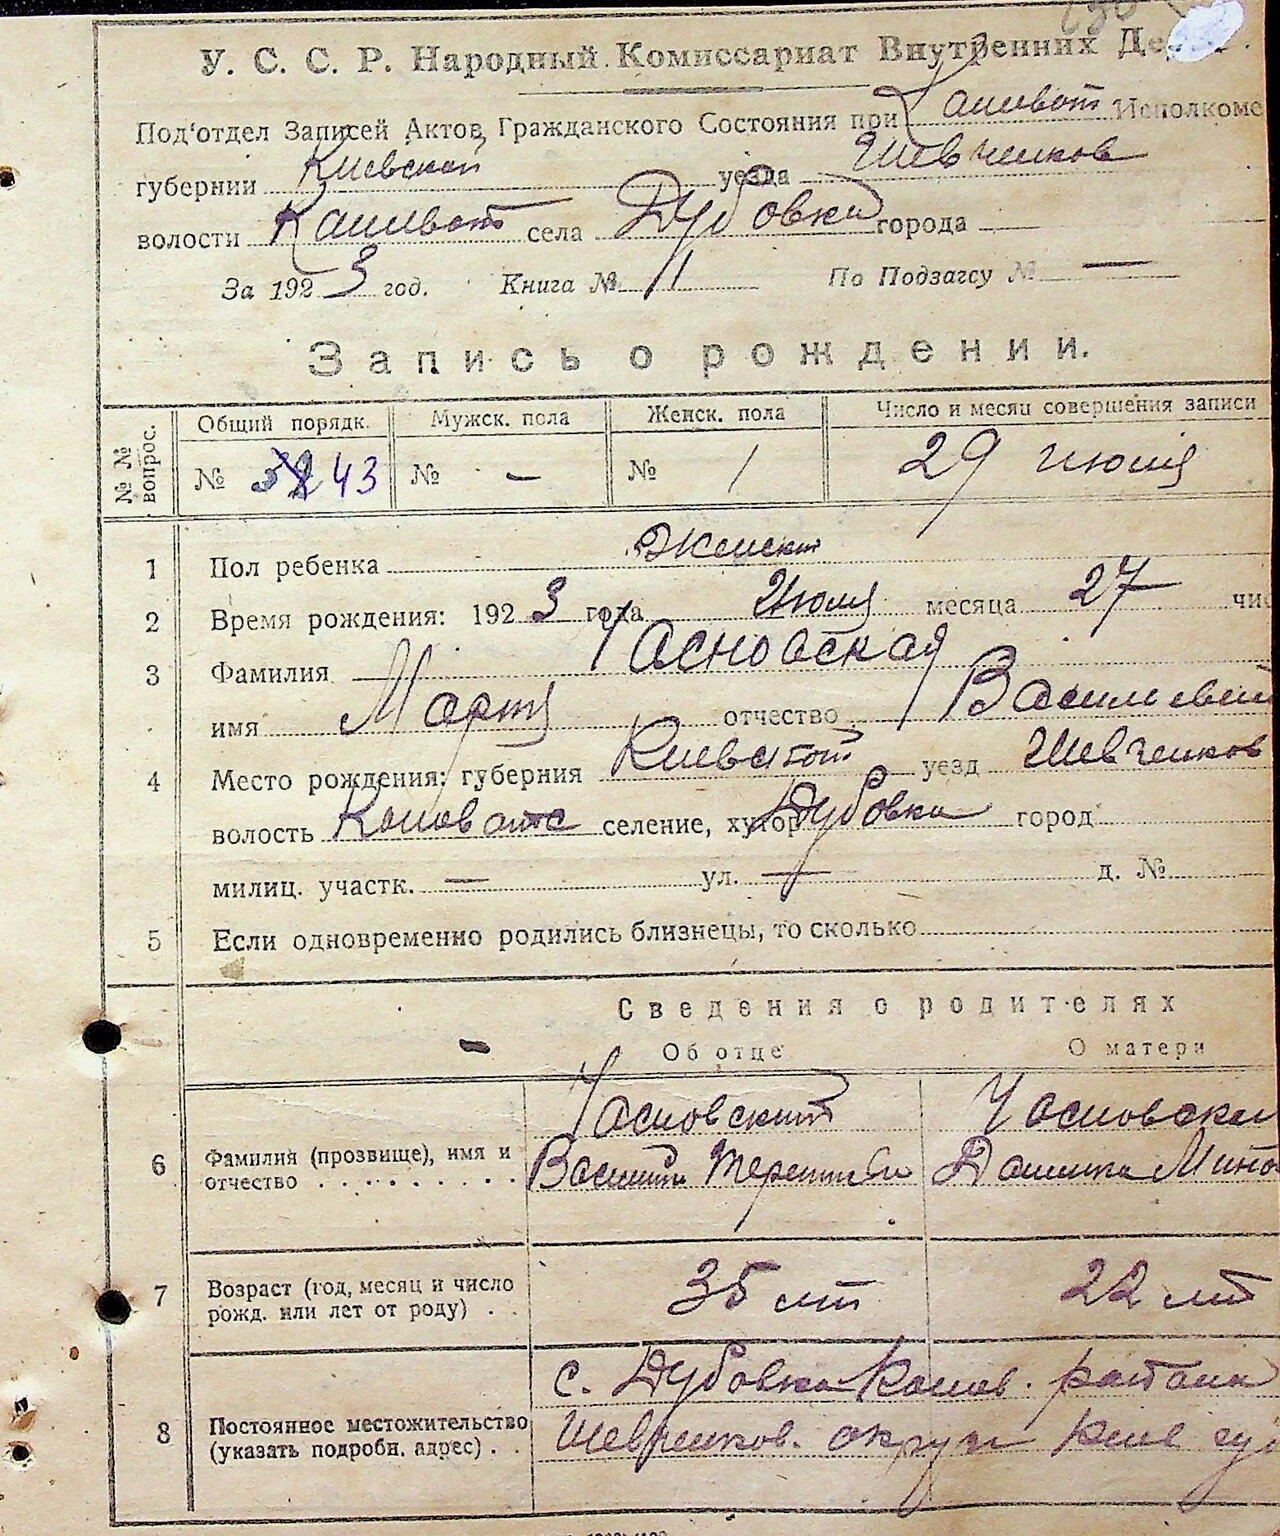 У. С. С. Р. Народный Комиссариат Внутренних
Под'отдел Записей Актов Гражданского Состояния при Исполкоме
губернии Киевской уезда Шевченков
волости села Дубовки города —
За 1923 год. Книга № 11 По Подзагсу № —
Запись о рождении.
№ № вопрос. Общий порядк. Мужск. пола Женск. пола Число и месяц совершения записи
№ 43 № — № 1 29 июля
1 Пол ребенка Женск
2 Время рождения: 1923 года Июля месяца 27
3 Фамилия Часновская
имя Марта отчество
4 Место рождения: губерния Киевской уезд Шевченков
волость селение, хутор Дубовка город
милиц. участк. — ул. — д. №
5 Если одновременно родились близнецы, то сколько
Сведения о родителях
Об отце О матери
6 Фамилия (прозвище), имя и отчество Часновский
Василий
7 Возраст (год, месяц и число рожд. или лет от роду) 35 лет 22 лет
8 Постоянное местожительство (указать подробн. адрес) с. Дубовка Канев.
Шевченков. округи Киев